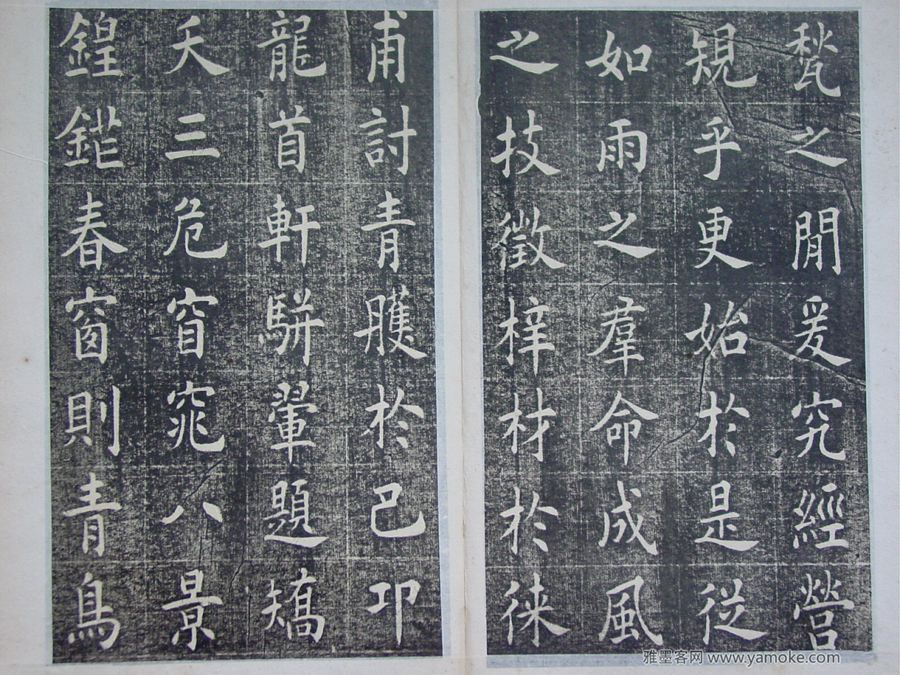 甃之閒爰究經營
規乎更始於是從
如雨之羣命成風
之技徵梓材於徕
甫討青雘於巴卭
龍首軒騈翬題矯
夭三危窅窕八景
鍠鎞春窗則青鳥
雅墨客网 www.yamoke.com